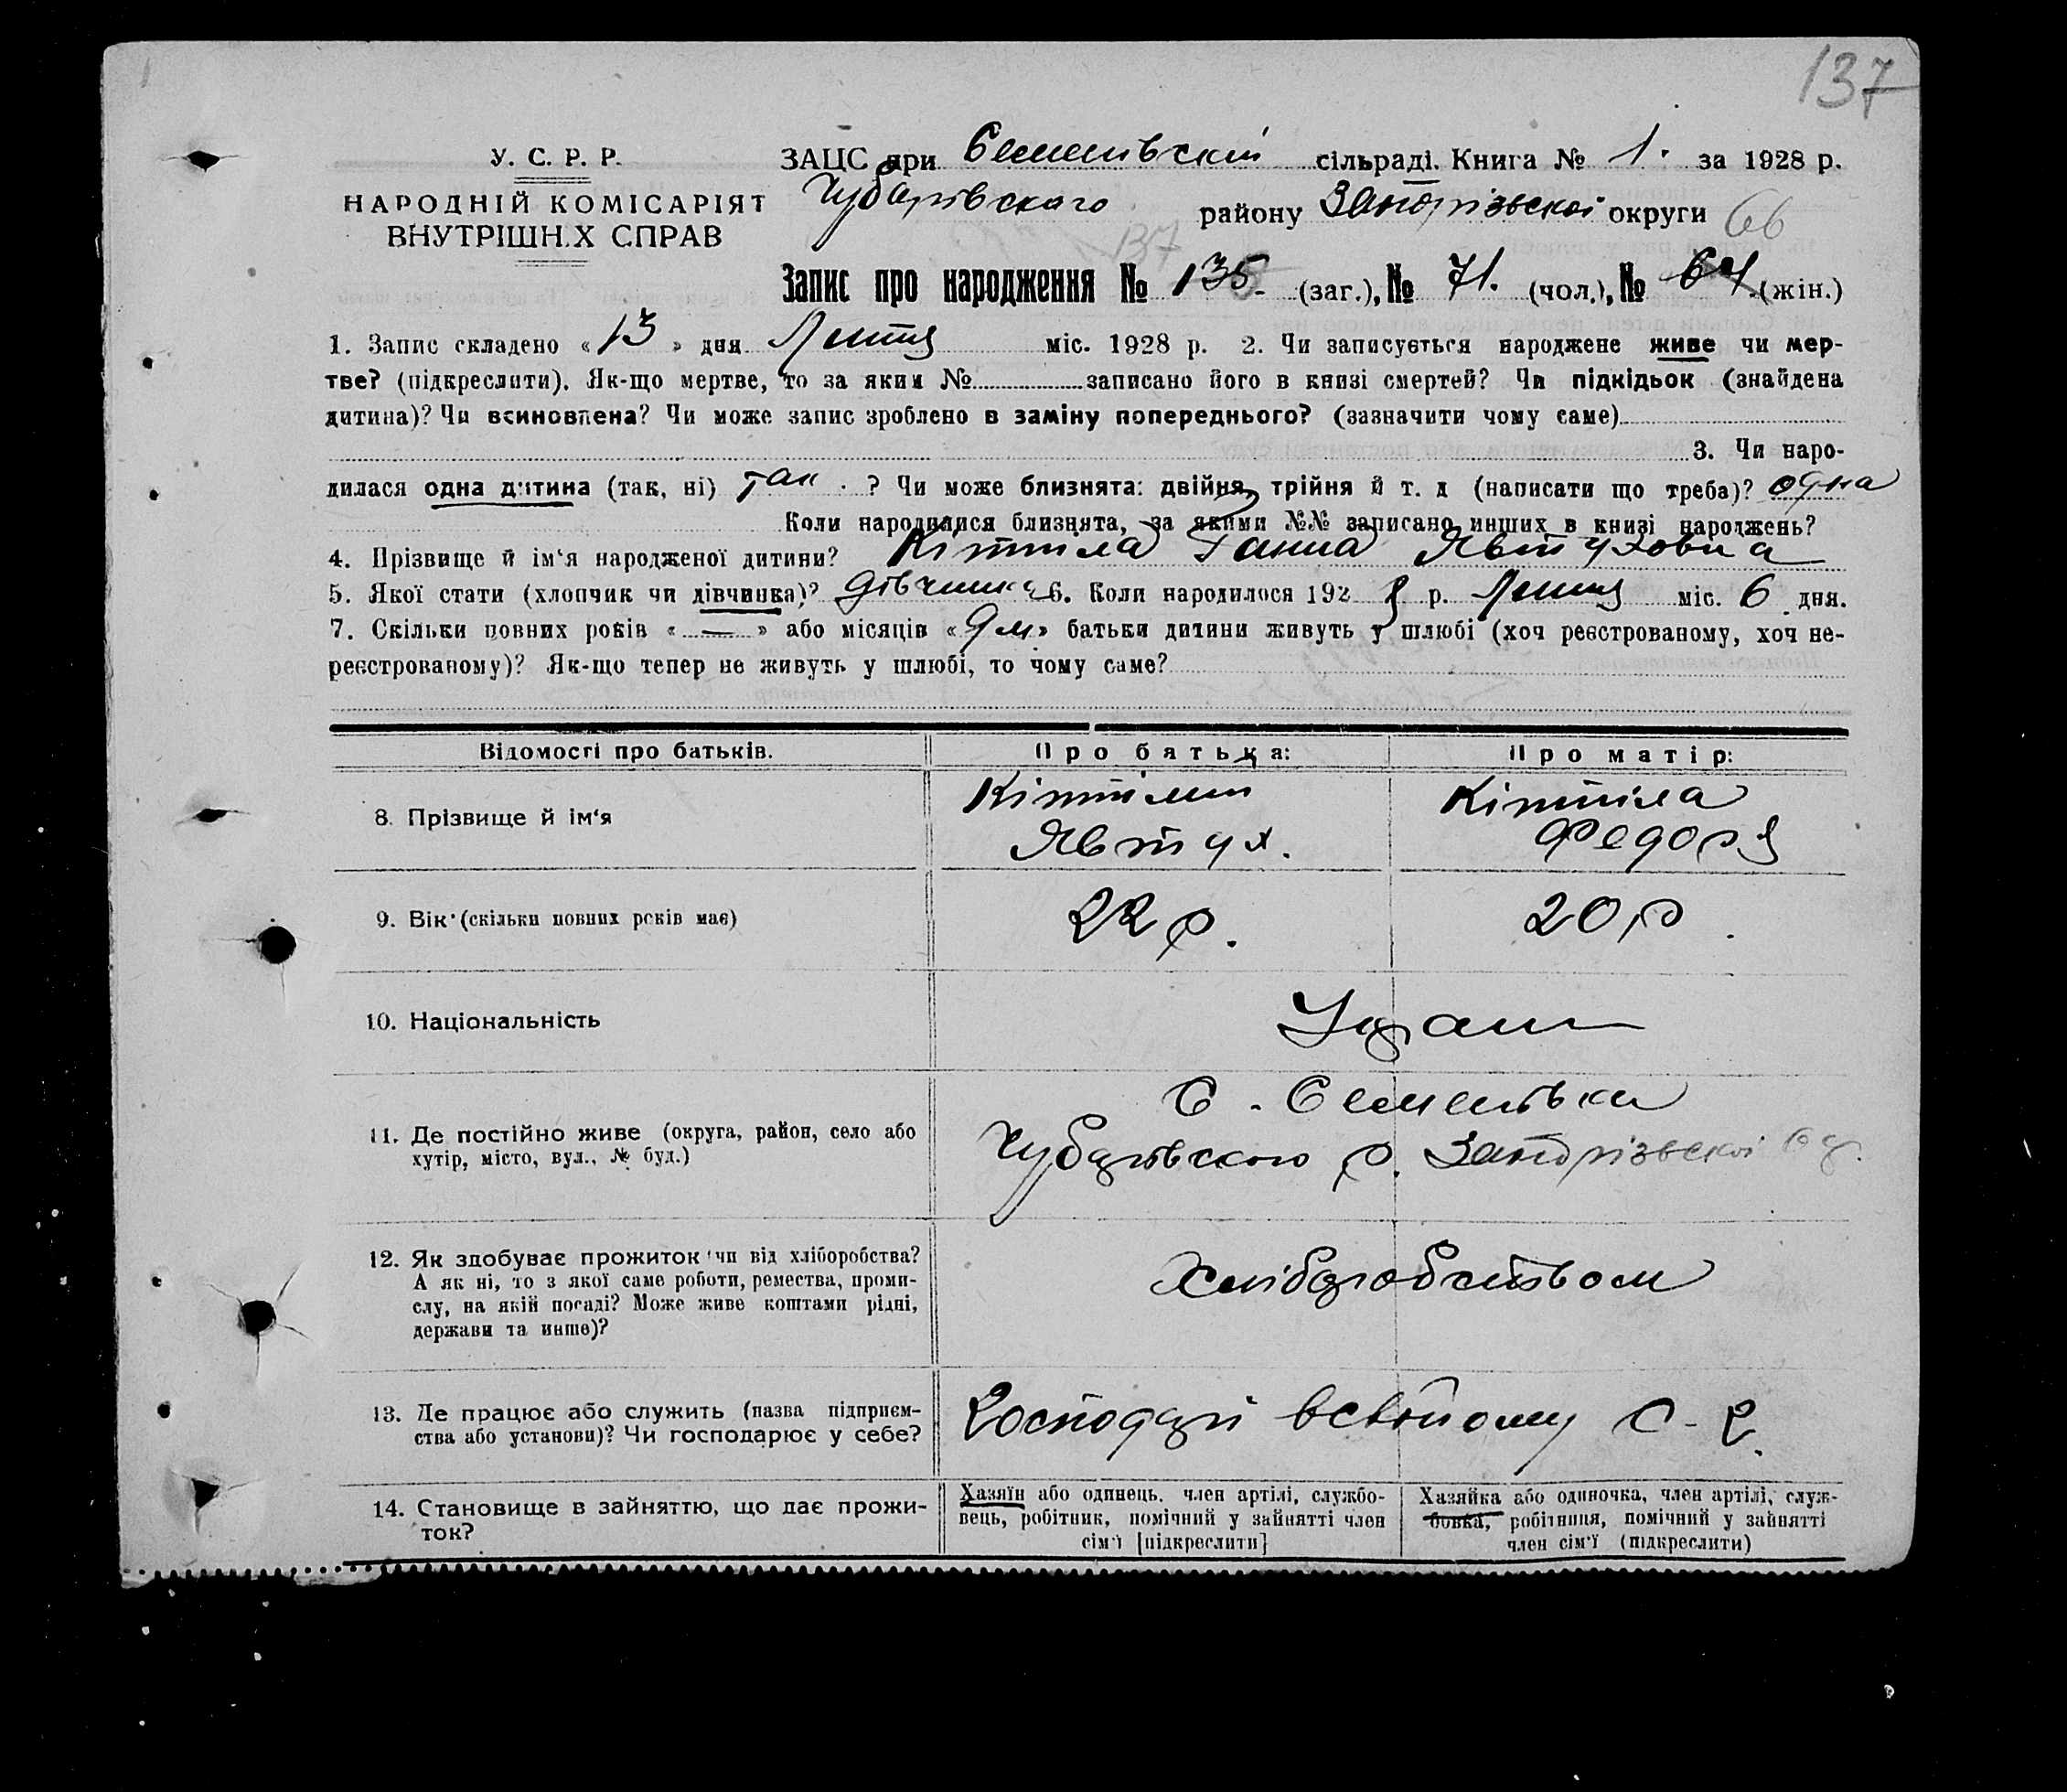 137
У. С. Р. Р.
НАРОДНІЙ КОМІСАРІЯТ
ВНУТРІШН.Х СПРАВ
ЗАЦС при Семенівскій сільраді. Книга № 1. за 1928 р.
Чубарівского району Запорізької округи
66
137
Запис про народження № 135. (заг.), № 71. (чол.), № 64 (жін.)
1. Запис складено «13» дня Липня міс. 1928 р. 2. Чи записується народжене живе чи мер-
тве? (підкреслити). Як-що мертве, то за яким № записано його в книзі смертей? Чи підкідьок (знайдена
дитина)? Чи всиновлена? Чи може запис зроблено в заміну попереднього? (зазначити чому саме)
3. Чи наро-
дилася одна дитина (так, ні) так. ? Чи може близнята: двійня, трійня й т. д (написати що треба)? одна
Коли народилися близнята, за якими №№ записано инших в книзі народжень?
4. Прізвище й ім‘я народженої дитини? Кіптіла Ганна Явтуховна
5. Якої стати (хлопчик чи дівчинка)? дівчинка 6. Коли народилося 192 8 р. Липня міс. 6 дня.
7. Скільки повних років «—» або місяців «9 м» батьки дитини живуть у шлюбі (хоч реєстрованому, хоч не-
реєстрованому)? Як-що тепер не живуть у шлюбі, то чому саме?
Відомості про батьків. Про батька: Про матір:
8. Прізвище й ім‘я
Кіптілий
Явтух.
Кіптіла
Федоря
9. Вік (скільки повних років має) 22 р. 20 р.
10. Національність Украин
11. Де постійно живе (округа, район, село або
хутір, місто, вул., № буд.)
С. Семенівка
Чубарівского р. Запорізької окр.
12. Як здобуває прожиток чи від хліборобства?
А як ні, то з якої саме роботи, ремества, проми-
слу, на якій посаді? Може живе коштами рідні,
держави та инше)?
Хліборобством
13. Де працює або служить (назва підприєм-
ства або установи)? Чи господарює у себе?
Господарі всвойому С-г.
14. Становище в зайняттю, що дає прожи-
ток?
Хазяїн або одинець. член артілі, службо-
вець, робітник, помічний у зайнятті член
сім‘ї [підкреслити]
Хазяйка або одиночка, член артілі, служ-
бовка, робітниця, помічний у зайнятті
член сім‘ї (підкреслити)